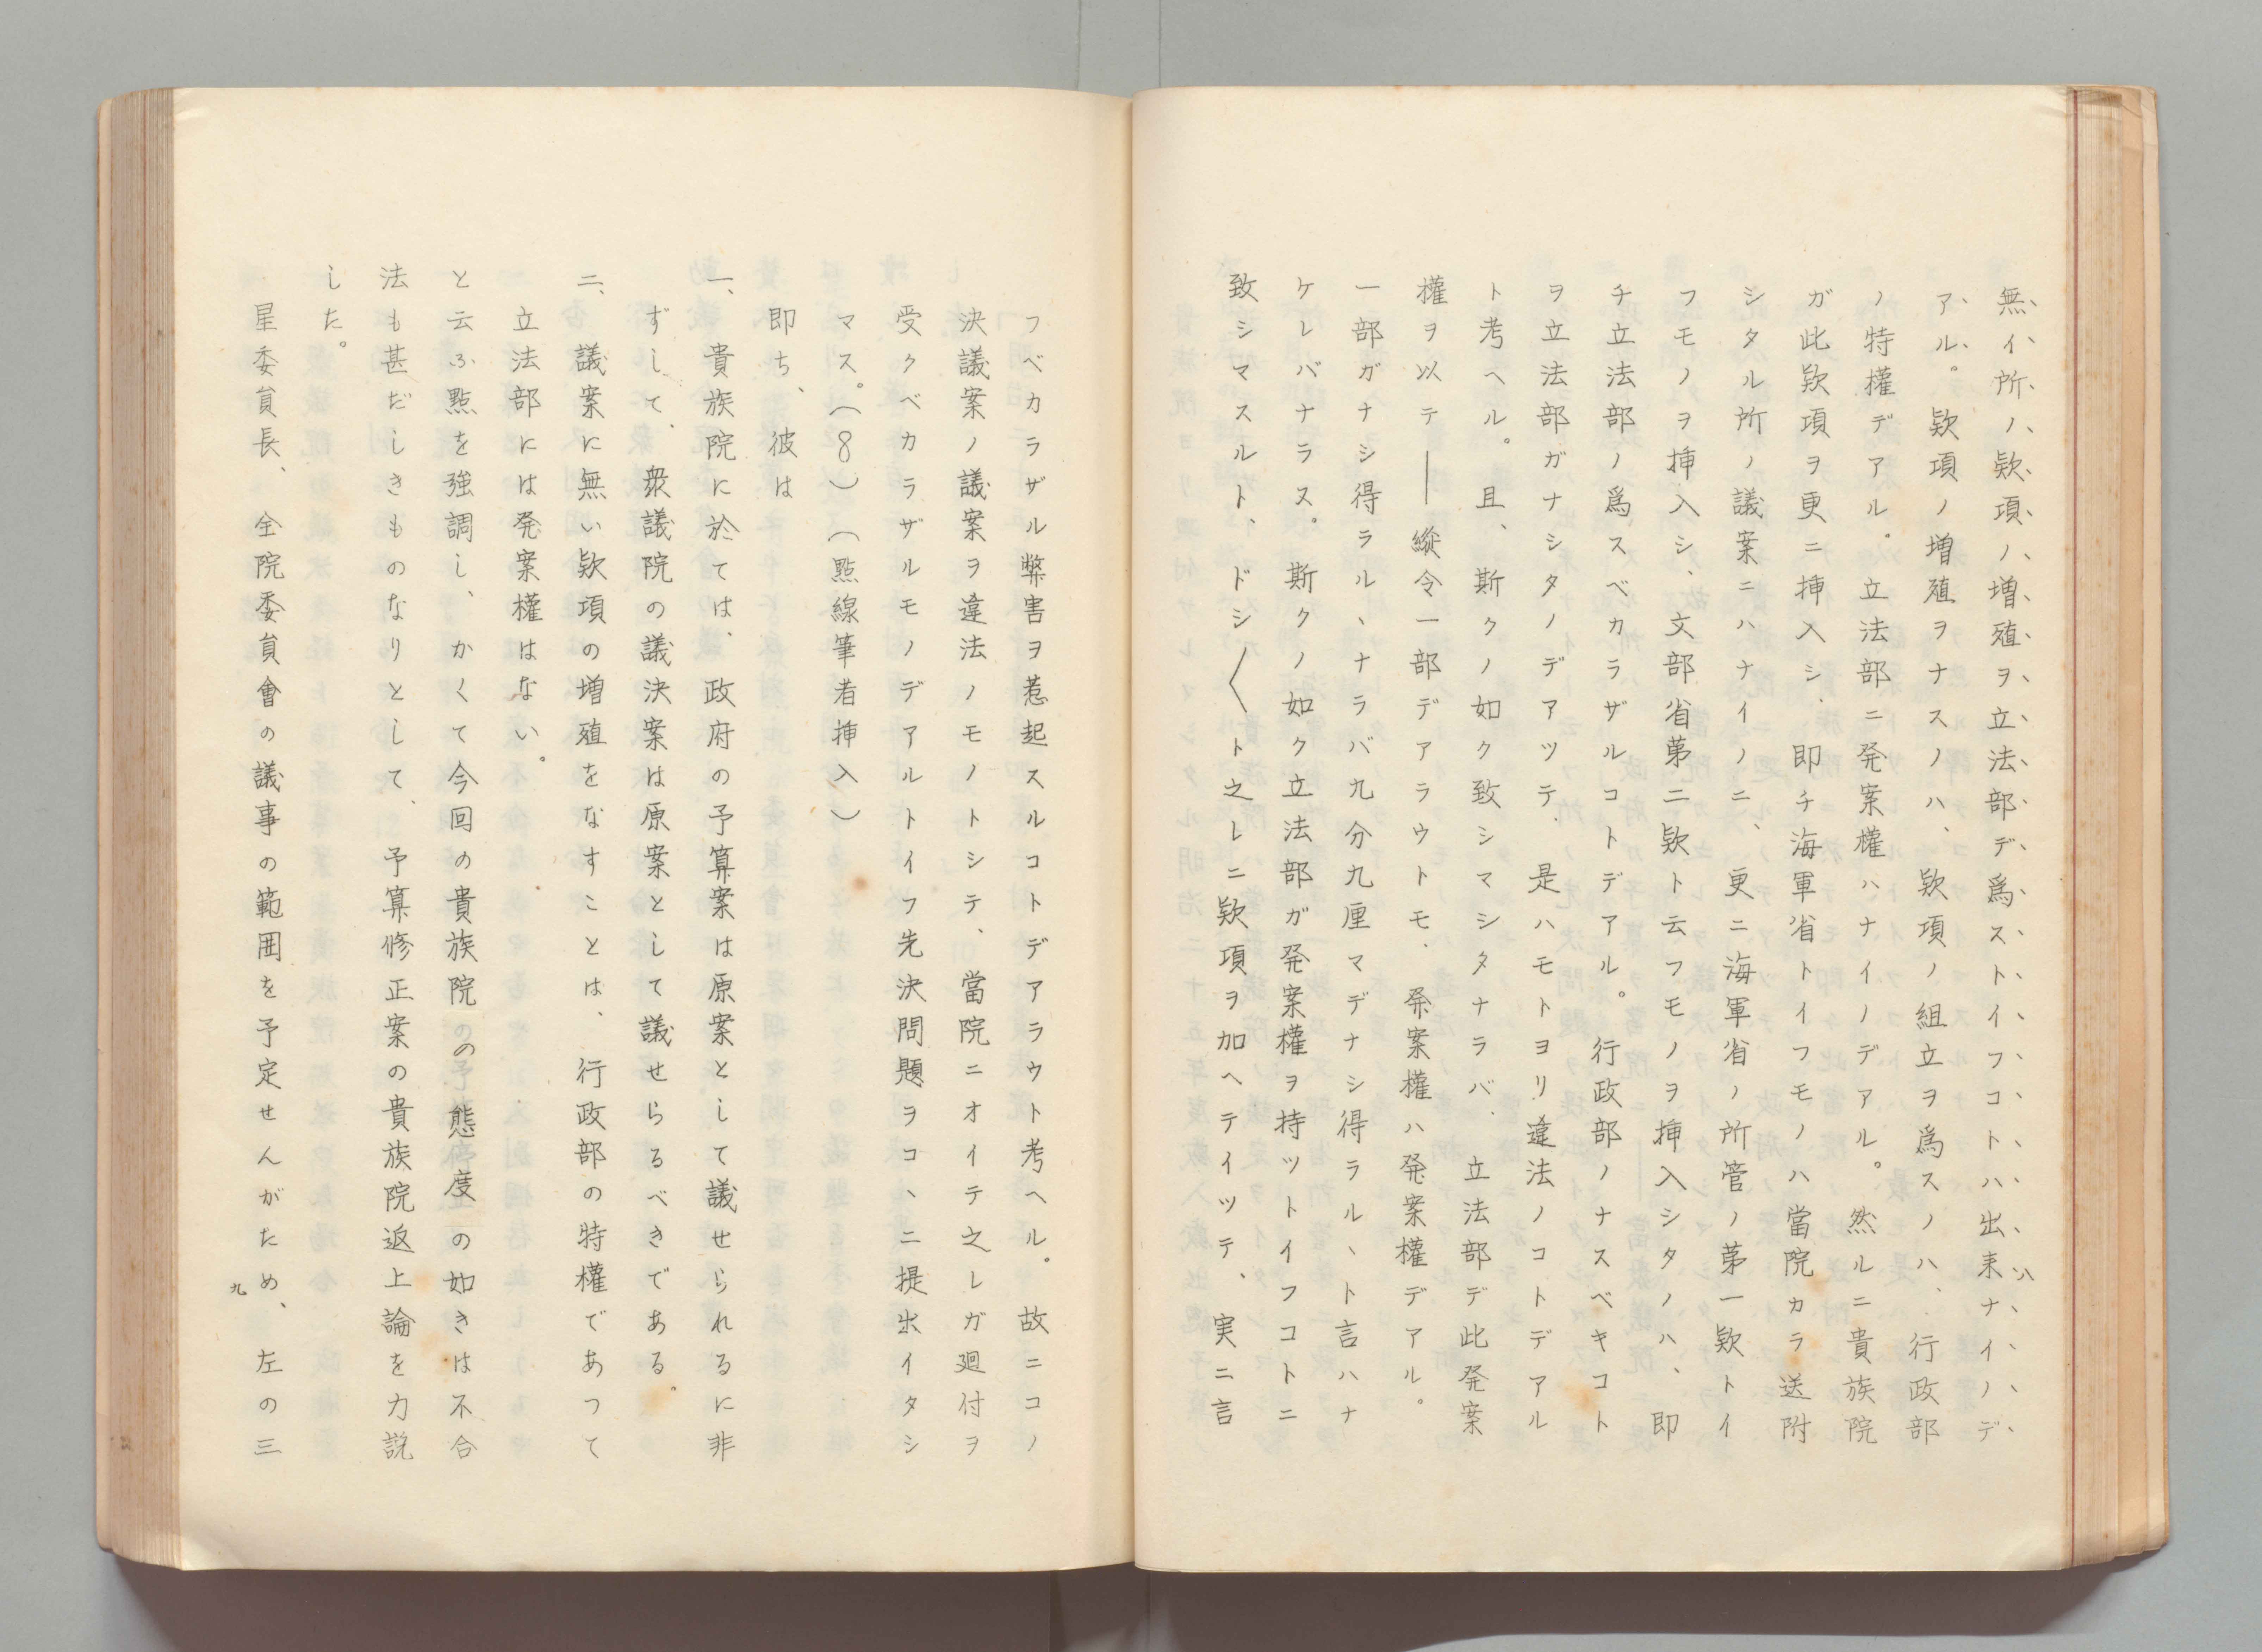 無イ所ノ欵項ノ増殖ヲ立法部デ爲ストイフコトハ出来ナイノデ
アル。欵項ノ増殖ヲナスノハ、欵項ノ組立ヲ爲スノハ、行政部
ノ特權デアル。立法部ニ発案權ハナイノデアル。然ルニ貴族院
ガ此欵項ヲ更ニ挿入シ、即チ海軍省トイフモノハ當院カラ送附
シタル所ノ議案ニハナイノニ、更ニ海軍省ノ所管ノ第一欵トイ
フモノヲ挿入シ、文部省第二欵ト云フモノヲ挿入シタノハ、即
チ立法部ノ爲スベカラザルコトデアル。行政部ノナスベキコト
ヲ立法部ガナシタノデアツテ、是ハモトヨリ違法ノコトデアル
ト考ヘル。且、斯クノ如ク致シマシタナラバ、立法部デ此発案
權ヲ以テ――縱令一部デアラウトモ、発案權ハ発案權デアル。
一部ガナシ得ラルヽナラバ九分九厘マデナシ得ラルヽト言ハナ
ケレバナラス。斯クノ如ク立法部ガ発案權ヲ持ツトイフコトニ
致シマスルト、ドシ〱ト之レニ欵項ヲ加ヘテイツテ、実ニ言
フベカラザル弊害ヲ惹起スルコトデアラウト考ヘル。故ニコノ
決議案ノ議案ヲ違法ノモノトシテ、當院ニオイテ之レガ廻付ヲ
受クベカラザルモノデアルトイフ先決問題ヲコヽニ提出イタシ
マス。(8)(點線筆者挿入)
即ち、彼は
一、貴族院に於ては、政府の予算案は原案として議せられるに非
ずして、衆議院の議決案は原案として議せらるべきである。
二、議案に無い欵項の増殖をなすことは、行政部の特權であつて
立法部には発案權はない。
と云ふ點を強調し、かくて今回の貴族院の態度の如きは不合
法も甚だしきものなりとして、予算修正案の貴族院返上論を力説
した。
星委員長、全院委員會の議事の範囲を予定せんがため、左の三
九